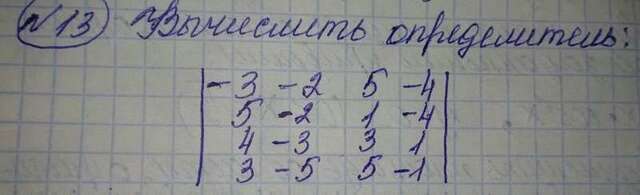 №13 Вычислить определитель:
-3 -2 5 -4
5 -2 1 -4
4 -3 3 1
3 -5 5 -1